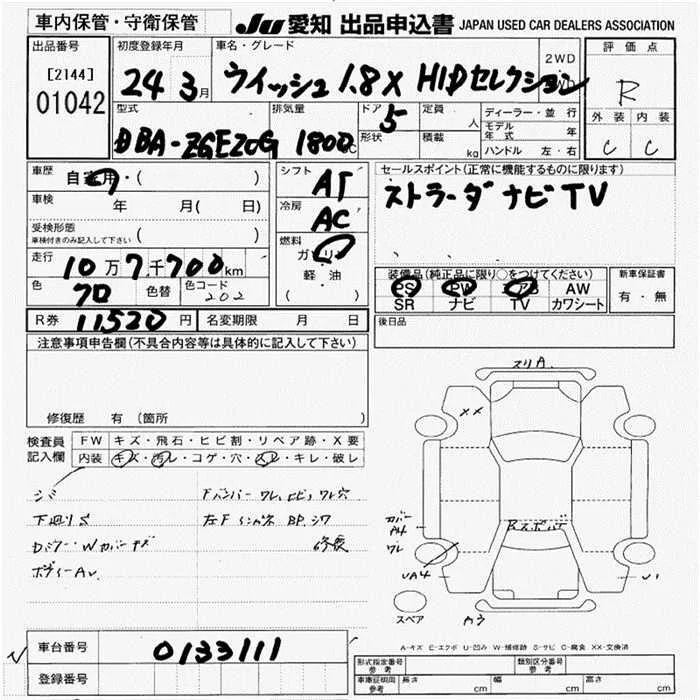 車内保管・守衛保管 JU 愛知 出品申込書 JAPAN USED CAR DEALERS ASSOCIATION
出品番号 初度登録年月 車名・グレード 2WD 評価点
[2144] 24 3月 ウイッシュ 1.8X HIDセレクション R
01042
型式 排気量 ドア 5 定員 人 ディーラー・並行 外装 内装
DBA-ZGE20G 1800 形状 積載 kg モデル年式 年 C C
ハンドル 左・右
車歴 自家用・( ) シフト AT セールスポイント(正常に機能するものに限ります)
車検 年 月( 日) 冷房 AC ストラーダナビTV
受検形態 ( )
車検付きのみ記入して下さい
燃料 ガソリン
走行 10万7千700km 軽・油
装備品(純正品に限り○をつけてください) 新車保証書
色 クロ 色替 色コード 202 ( )
PS PW エアB AW 有・無
SR ナビ TV カワシート
R券 11520円 名変期限 月 日 後日品
注意事項申告欄(不具合内容等は具体的に記入して下さい)
修復歴 有 (箇所 )
スリA
XX
検査員記入欄 FW キズ・飛石・ヒビ割・リペア跡・X要
内装 キズ・汚レ・コゲ・穴・スレ・キレ・破レ
シミ Fバンパー ワレ,ヒビ,ワレ穴
下廻りS 左Fインサイ BP,シワ
修復
ボディーAU
カバー
A4
ワレ
UA4 U1
スペア
A-キズ E-エクボ U-凹み W-補修跡 S-サビ C-腐食 XX-交換済
車台番号 0133111
登録番号
形式指定番号 参考 類別区分番号 参考
車庫証明用 参考 長さ cm 幅 cm 高さ cm